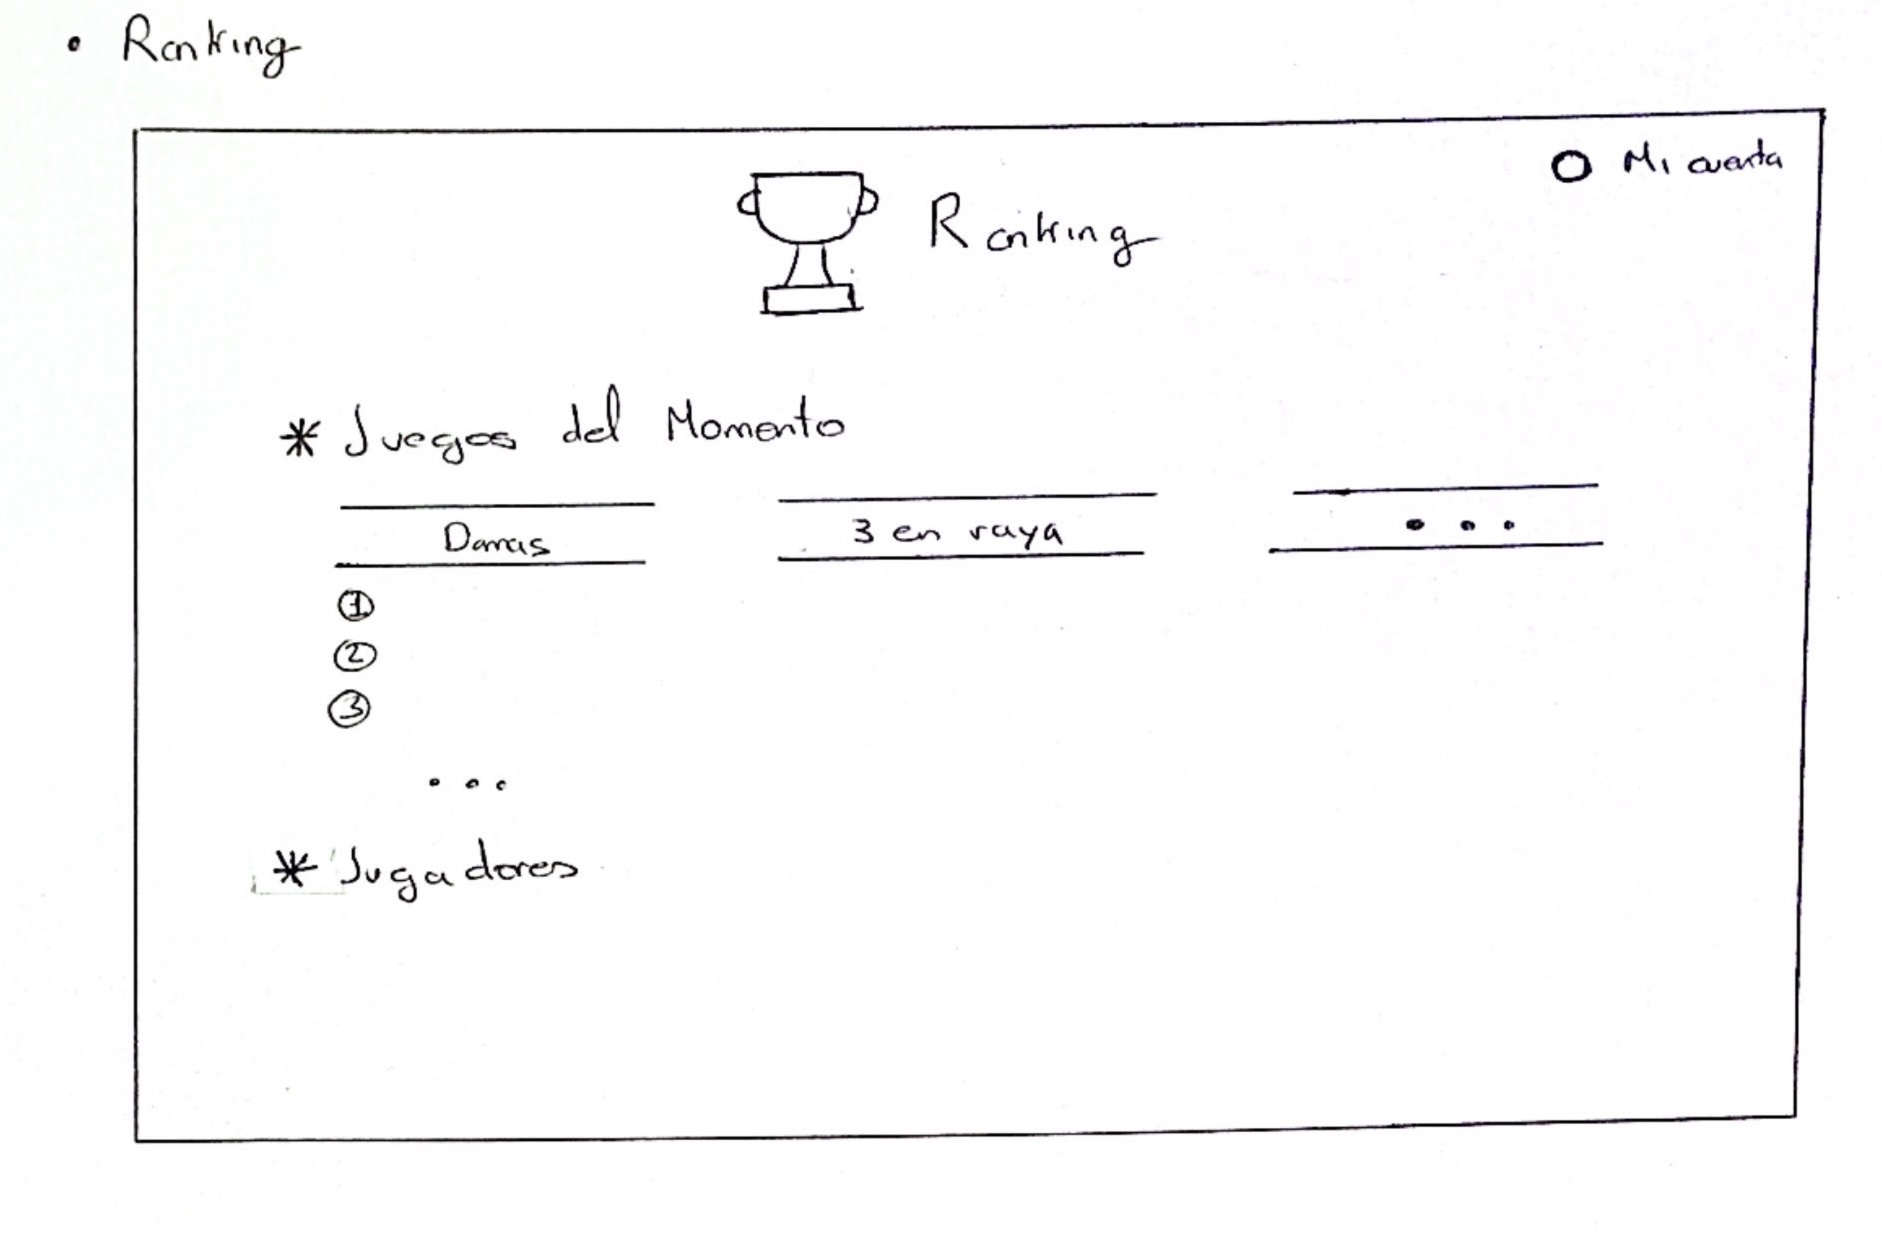 • Ranking
O Mi cuenta
Ranking
* Juegos del Momento
Damas 3 en raya ...
1
2
3
...
* Jugadores